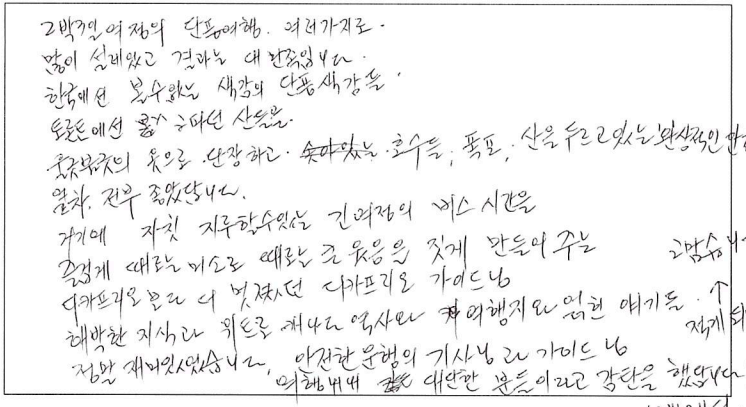 2박3일 여정의 단풍여행. 여러가지로.
많이 설레었고 결과는 대만족입니다.
한국에선 볼수없는 색감의 단풍색감들.
토론토에선 보기 산들을.
울긋불긋의 옷으로 단장하고. 솟아있는 호수들, 폭포, 산을 두르고있는 환상적인
열차. 전부 좋았답니다.
거기에 자칫 지루할수있는 긴여정의 버스 시간을
즐겁게 때로는 미소로 때로는 큰 웃음을 짓게 만들어 주는
디카프리오 보다 더 멋졌던 디카프리오 가이드님 고맙습니
해박한 지식과 위트로 캐나다 역사와 여행지와 얽힌 얘기들. ↑
정말 재미있었습니다, 안전한 운행의 기사님과 가이드님 적게
여행내내 대단한 분들이라고 감탄을 했답니다